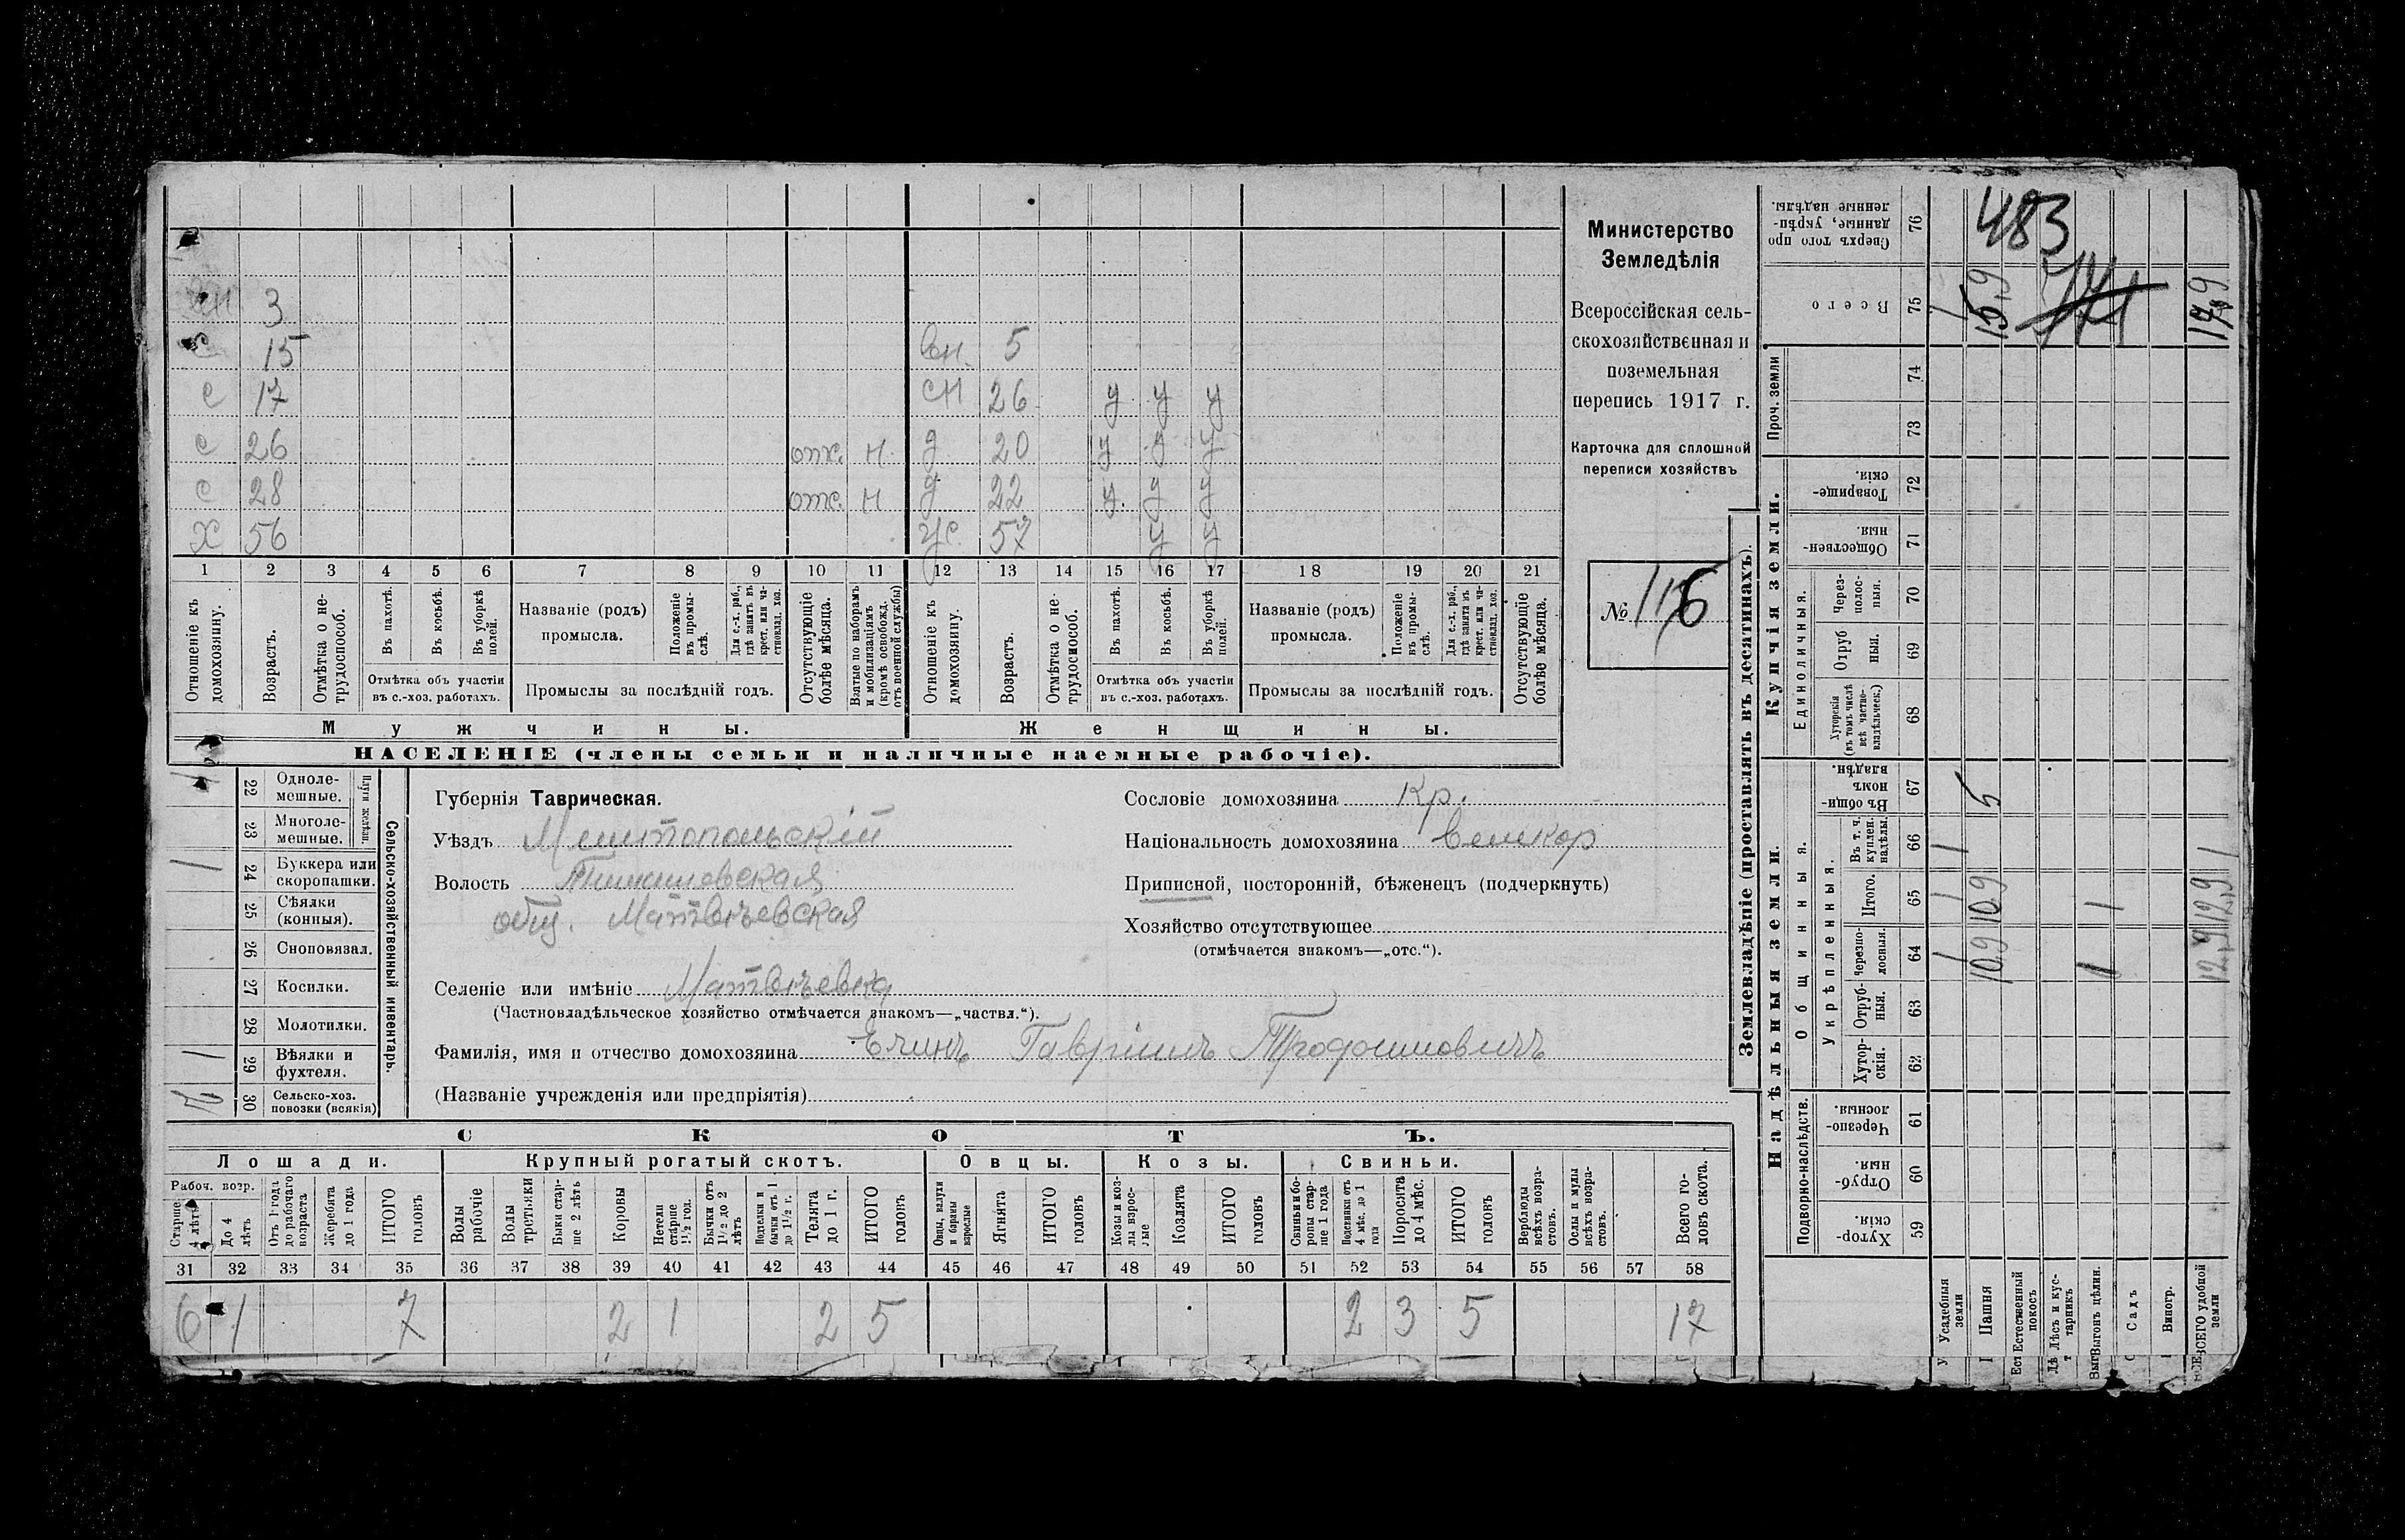 Министерство
Земледѣлія
Всероссійская сель-
скохозяйственная и
поземельная
перепись 1917 г.
Карточка для сплошной
переписи хозяйствъ
№ 116
483
сн 3
с 15
вн. 5
с 17
сн 26 у у у
с 26 отс. н.
д 20 у у у
с 28 отс. н
д 22 у. у у
х 56
жс 57 у у
1 2 3 4 5 6 7 8 9 10 11 12 13 14 15 16 17 18 19 20 21
Отношеніе къ домохозяину.
Возрастъ.
Отмѣтка о не-трудоспособ.
Въ пахотѣ.
Въ косьбѣ.
Въ уборкѣ полей.
Отмѣтка объ участіи въ с.-хоз. работахъ.
Названіе (родъ) промысла.
Положеніе въ промы-слѣ.
Для с.-х. раб., гдѣ занятъ въ крест. или ча-стновлад. хоз.
Промыслы за послѣдній годъ.
Отсутствующіе болѣе мѣсяца.
Взятые по наборамъ и мобилизаціямъ (кромѣ освобожд. отъ военной службы)
Отношеніе къ домохозяину.
Возрастъ.
Отмѣтка о не-трудоспособ.
Въ пахотѣ.
Въ косьбѣ.
Въ уборкѣ полей.
Отмѣтка объ участіи въ с.-хоз. работахъ.
Названіе (родъ) промысла.
Положеніе въ промы-слѣ.
Для с.-х. раб., гдѣ занята въ крест. или ча-стновлад. хоз.
Промыслы за послѣдній годъ.
Отсутствующіе болѣе мѣсяца.
Мужчины.
Женщины.
НАСЕЛЕНІЕ (члены семьи и наличные наемные рабочіе).
Сельско-хозяйственный инвентарь.
Плуги желѣзн.
22 Одноле-мешные.
23 Многоле-мешные.
1 24 Буккера или скоропашки.
25 Сѣялки (конныя).
26 Сноповязал.
27 Косилки.
28 Молотилки.
1 29 Вѣялки и фухтеля.
30 Сельско-хоз. повозки (всякія)
Губернія Таврическая.
Уѣздъ Мелитопольскій
Волость Тимашевская
общ. Матвѣевская
Селеніе или имѣніе Матвѣевка
(Частновладѣльческое хозяйство отмѣчается знакомъ—„частвл.“).
Фамилія, имя и отчество домохозяина Ечинъ Гавріилъ Трофимовичъ
(Названіе учрежденія или предпріятія)
Сословіе домохозяина Кр.
Національность домохозяина великор
Приписной, посторонній, бѣженецъ (подчеркнуть)
Хозяйство отсутствующее
(отмѣчается знакомъ—„отс.“).
СКОТЪ.
Лошади. Крупный рогатый скотъ. Овцы. Козы. Свиньи.
Рабоч. возр.
Старше 4 лѣтъ
До 4 лѣтъ
Отъ 1 года до рабочаго возраста
Жеребята до 1 года
ИТОГО головъ
Волы рабочіе
Волы третьяки
Быки стар-ше 2 лѣтъ
Коровы
Нетели старше 1½ год.
Бычки отъ 1½ до 2 лѣтъ
Подтелки и бычки отъ 1 до 1½ г.
Телята до 1 г.
ИТОГО головъ
Овцы, валухи и бараны взрослые
Ягнята
ИТОГО головъ
Козы и коз-лы взрос-лые
Козлята
ИТОГО головъ
Свиньи и бо-ровы стар-ше 1 года
Подсвинки отъ 4 мѣс. до 1 года
Поросята до 4 мѣс.
ИТОГО головъ
Верблюды всѣхъ возра-стовъ.
Ослы и мулы всѣхъ возра-стовъ.
Всего го-ловъ скота.
31 32 33 34 35 36 37 38 39 40 41 42 43 44 45 46 47 48 49 50 51 52 53 54 55 56 57 58
6 1 7 2 1 2 5 2 3 5 17
Землевладѣніе (проставлять въ десятинахъ).
Надѣльныя земли.
Купчія земли.
Проч. земли
Сверхъ того про данные, укрѣп-ленные надѣлы. 76
Всего 75 1 15,9
74
73
Товарище-скія. 72
Обществен-ныя. 71
Единоличныя.
Через-полос-ныя. 70
Отруб ныя. 69
Хуторскія (въ томъ числѣ всѣ частно-владѣльческ.) 68
Общинныя.
Въ общи-номъ владѣн. 67 5
Укрѣпленныя.
Въ т. ч. куплен. надѣлы. 66 1
Итого. 65 1 10,9 1 12,9
Черезпо-лосныя. 64 1 10,9 1 12,9
Отруб-ныя. 63
Хутор-скія. 62
Подворно-наслѣдств.
Черезпо-лосныя. 61
Отруб-ныя. 60
Хутор-скія. 59
Усадебныя земли
Пашня
Естественный покосъ
Лѣсъ и кус-тарникъ
Выгонъ цѣлин.
Садъ
Виногр.
ВСЕГО удобной земли